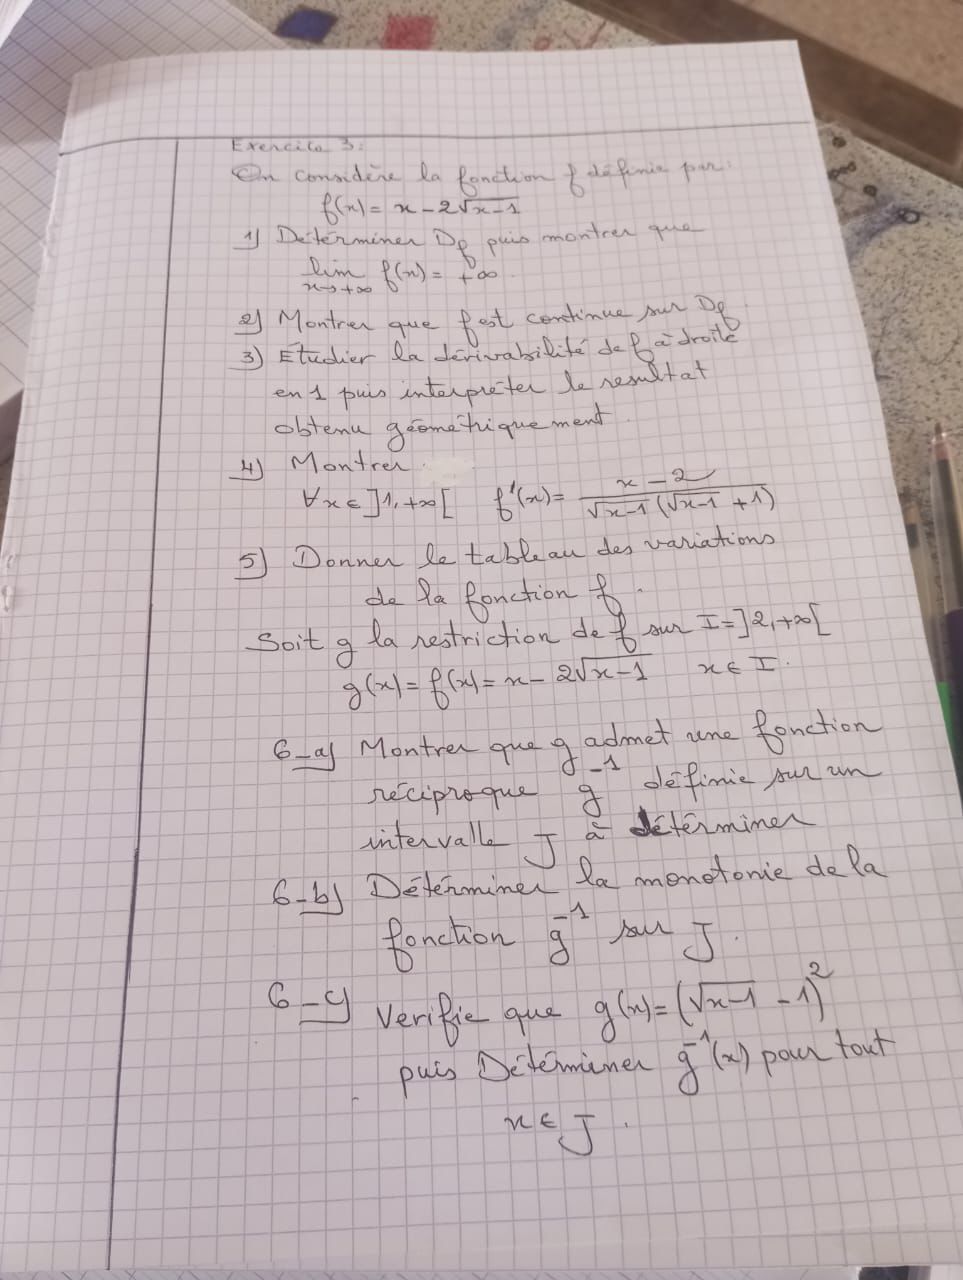 Exercice 3:
On considère la fonction f définie par:
f(x) = x - 2√(x-1)
1) Déterminer Df puis montrer que
lim f(x) = +∞
x→+∞
2) Montrer que f est continue sur Df.
3) Etudier la dérivabilité de f à droite
en 1 puis interpréter le resultat
obtenu géométriquement.
4) Montrer
∀x ∈ ]1,+∞[ f'(x) = (x-2)/(√(x-1)(√(x-1) + 1))
5) Donner le tableau des variations
de la fonction f.
Soit g la restriction de f sur I = ]2,+∞[
g(x) = f(x) = x - 2√(x-1) x ∈ I.
6-a) Montrer que g admet une fonction
réciproque g⁻¹ définie sur un
intervalle J à déterminer
6-b) Déterminer la monotonie de la
fonction g⁻¹ sur J.
6-c) Verifie que g(x) = (√(x-1) - 1)²
puis Déterminer g⁻¹(x) pour tout
x ∈ J.